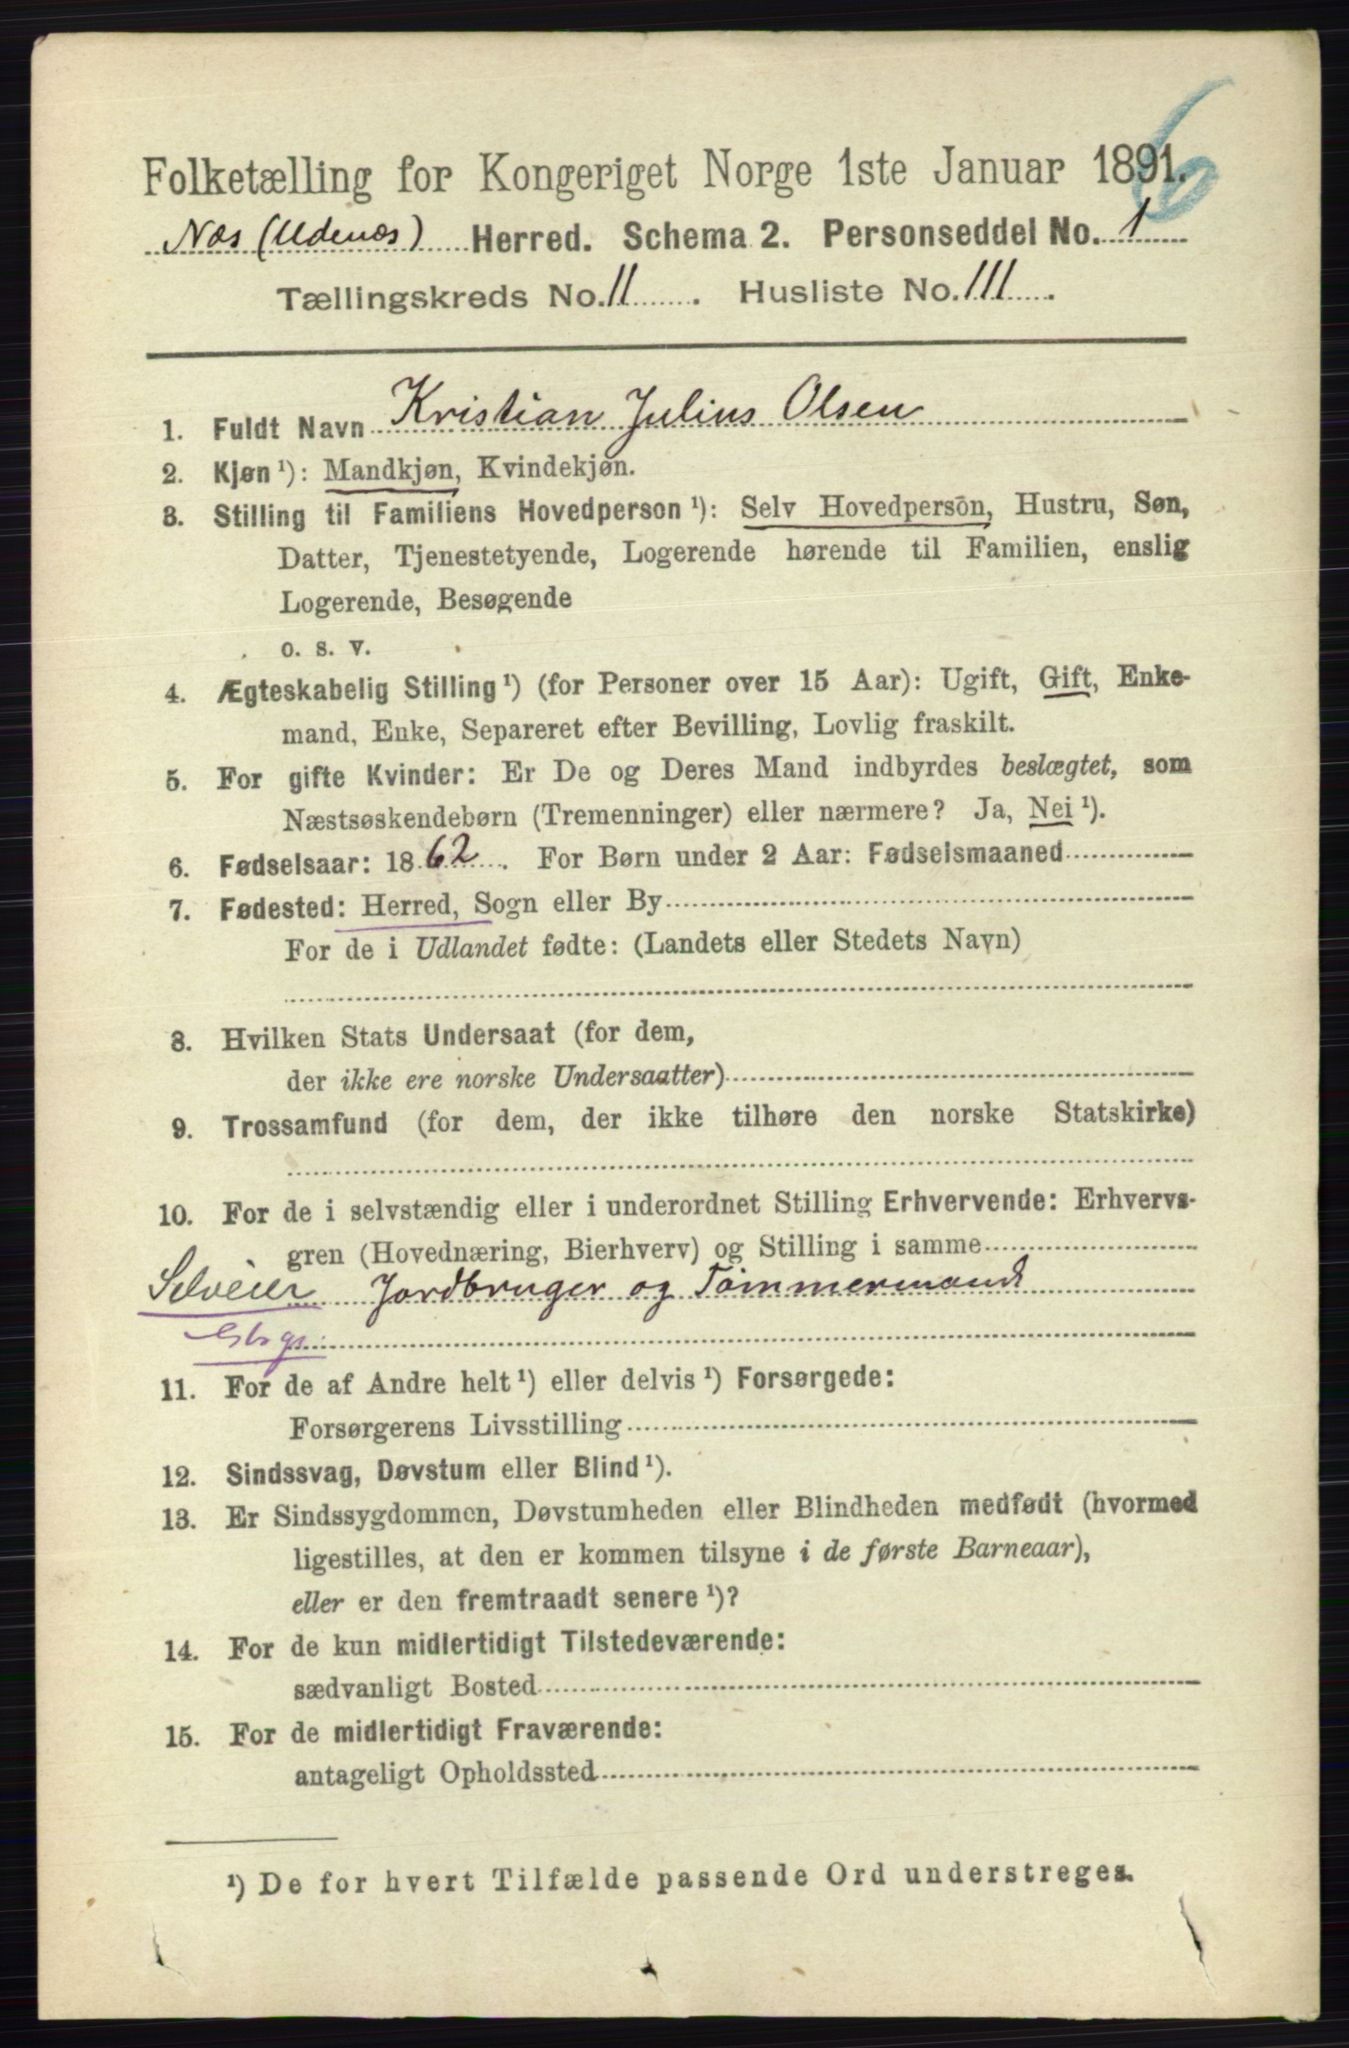 6
Folketælling for Kongeriget Norge 1ste Januar 1891.
Næs (Udenæs) Herred. Schema 2. Personseddel No. 1
Tællingskreds No. 11 . Husliste No. 111 .
1. Fuldt Navn Kristian Julius Olsen
2. Kjøn ¹): Mandkjøn, Kvindekjøn.
3. Stilling til Familiens Hovedperson ¹): Selv Hovedperson, Hustru, Søn,
Datter, Tjenestetyende, Logerende hørende til Familien, enslig
Logerende, Besøgende
o. s. v.
4. Ægteskabelig Stilling ¹) (for Personer over 15 Aar): Ugift, Gift, Enke-
mand, Enke, Separeret efter Bevilling, Lovlig fraskilt.
5. For gifte Kvinder: Er De og Deres Mand indbyrdes beslægtet, som
Næstsøskendebørn (Tremenninger) eller nærmere? Ja, Nei ¹).
6. Fødselsaar: 1862 . For Børn under 2 Aar: Fødselsmaaned
7. Fødested: Herred, Sogn eller By
For de i Udlandet fødte: (Landets eller Stedets Navn)
8. Hvilken Stats Undersaat (for dem,
der ikke ere norske Undersaatter)
9. Trossamfund (for dem, der ikke tilhøre den norske Statskirke)
10. For de i selvstændig eller i underordnet Stilling Erhvervende: Erhvervs-
gren (Hovednæring, Bierhverv) og Stilling i samme
Selveier Jordbruger og Tømmermand
11. For de af Andre helt ¹) eller delvis ¹) Forsørgede:
Forsørgerens Livsstilling
12. Sindssvag, Døvstum eller Blind ¹).
13. Er Sindssygdommen, Døvstumheden eller Blindheden medfødt (hvormed
ligestilles, at den er kommen tilsyne i de første Barneaar),
eller er den fremtraadt senere ¹)?
14. For de kun midlertidigt Tilstedeværende:
sædvanligt Bosted
15. For de midlertidigt Fraværende:
antageligt Opholdssted
¹) De for hvert Tilfælde passende Ord understreges.